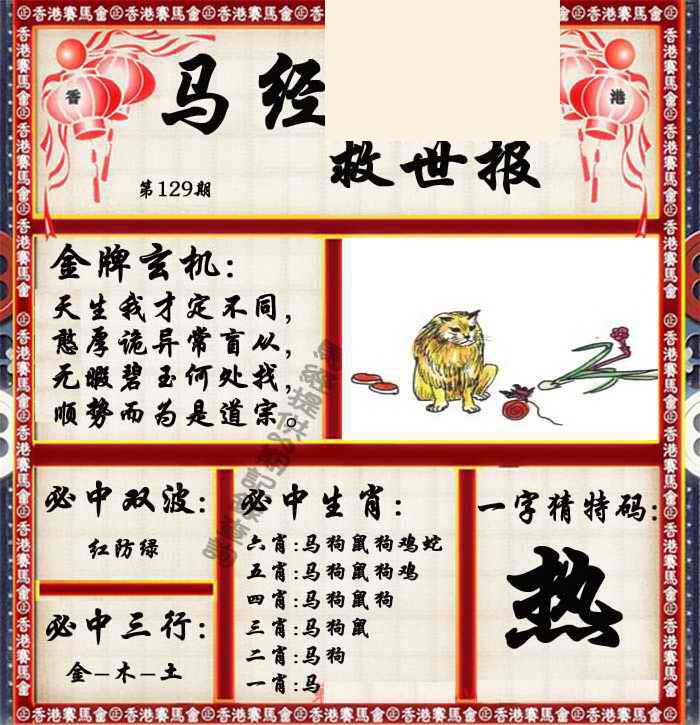 香港賽馬會㊣香港賽馬會㊣香港賽馬會㊣香港賽馬會
香 港
马经
救世报
第129期
金牌玄机:
天生我才定不同,
憨厚诡异常盲从,
无暇碧玉何处找,
顺势而为是道宗。
必中双波:
红防绿
必中三行:
金-木-土
必中生肖:
六肖:马狗鼠狗鸡蛇
五肖:马狗鼠狗鸡
四肖:马狗鼠狗
三肖:马狗鼠
二肖:马狗
一肖:马
一字猜特码:
热